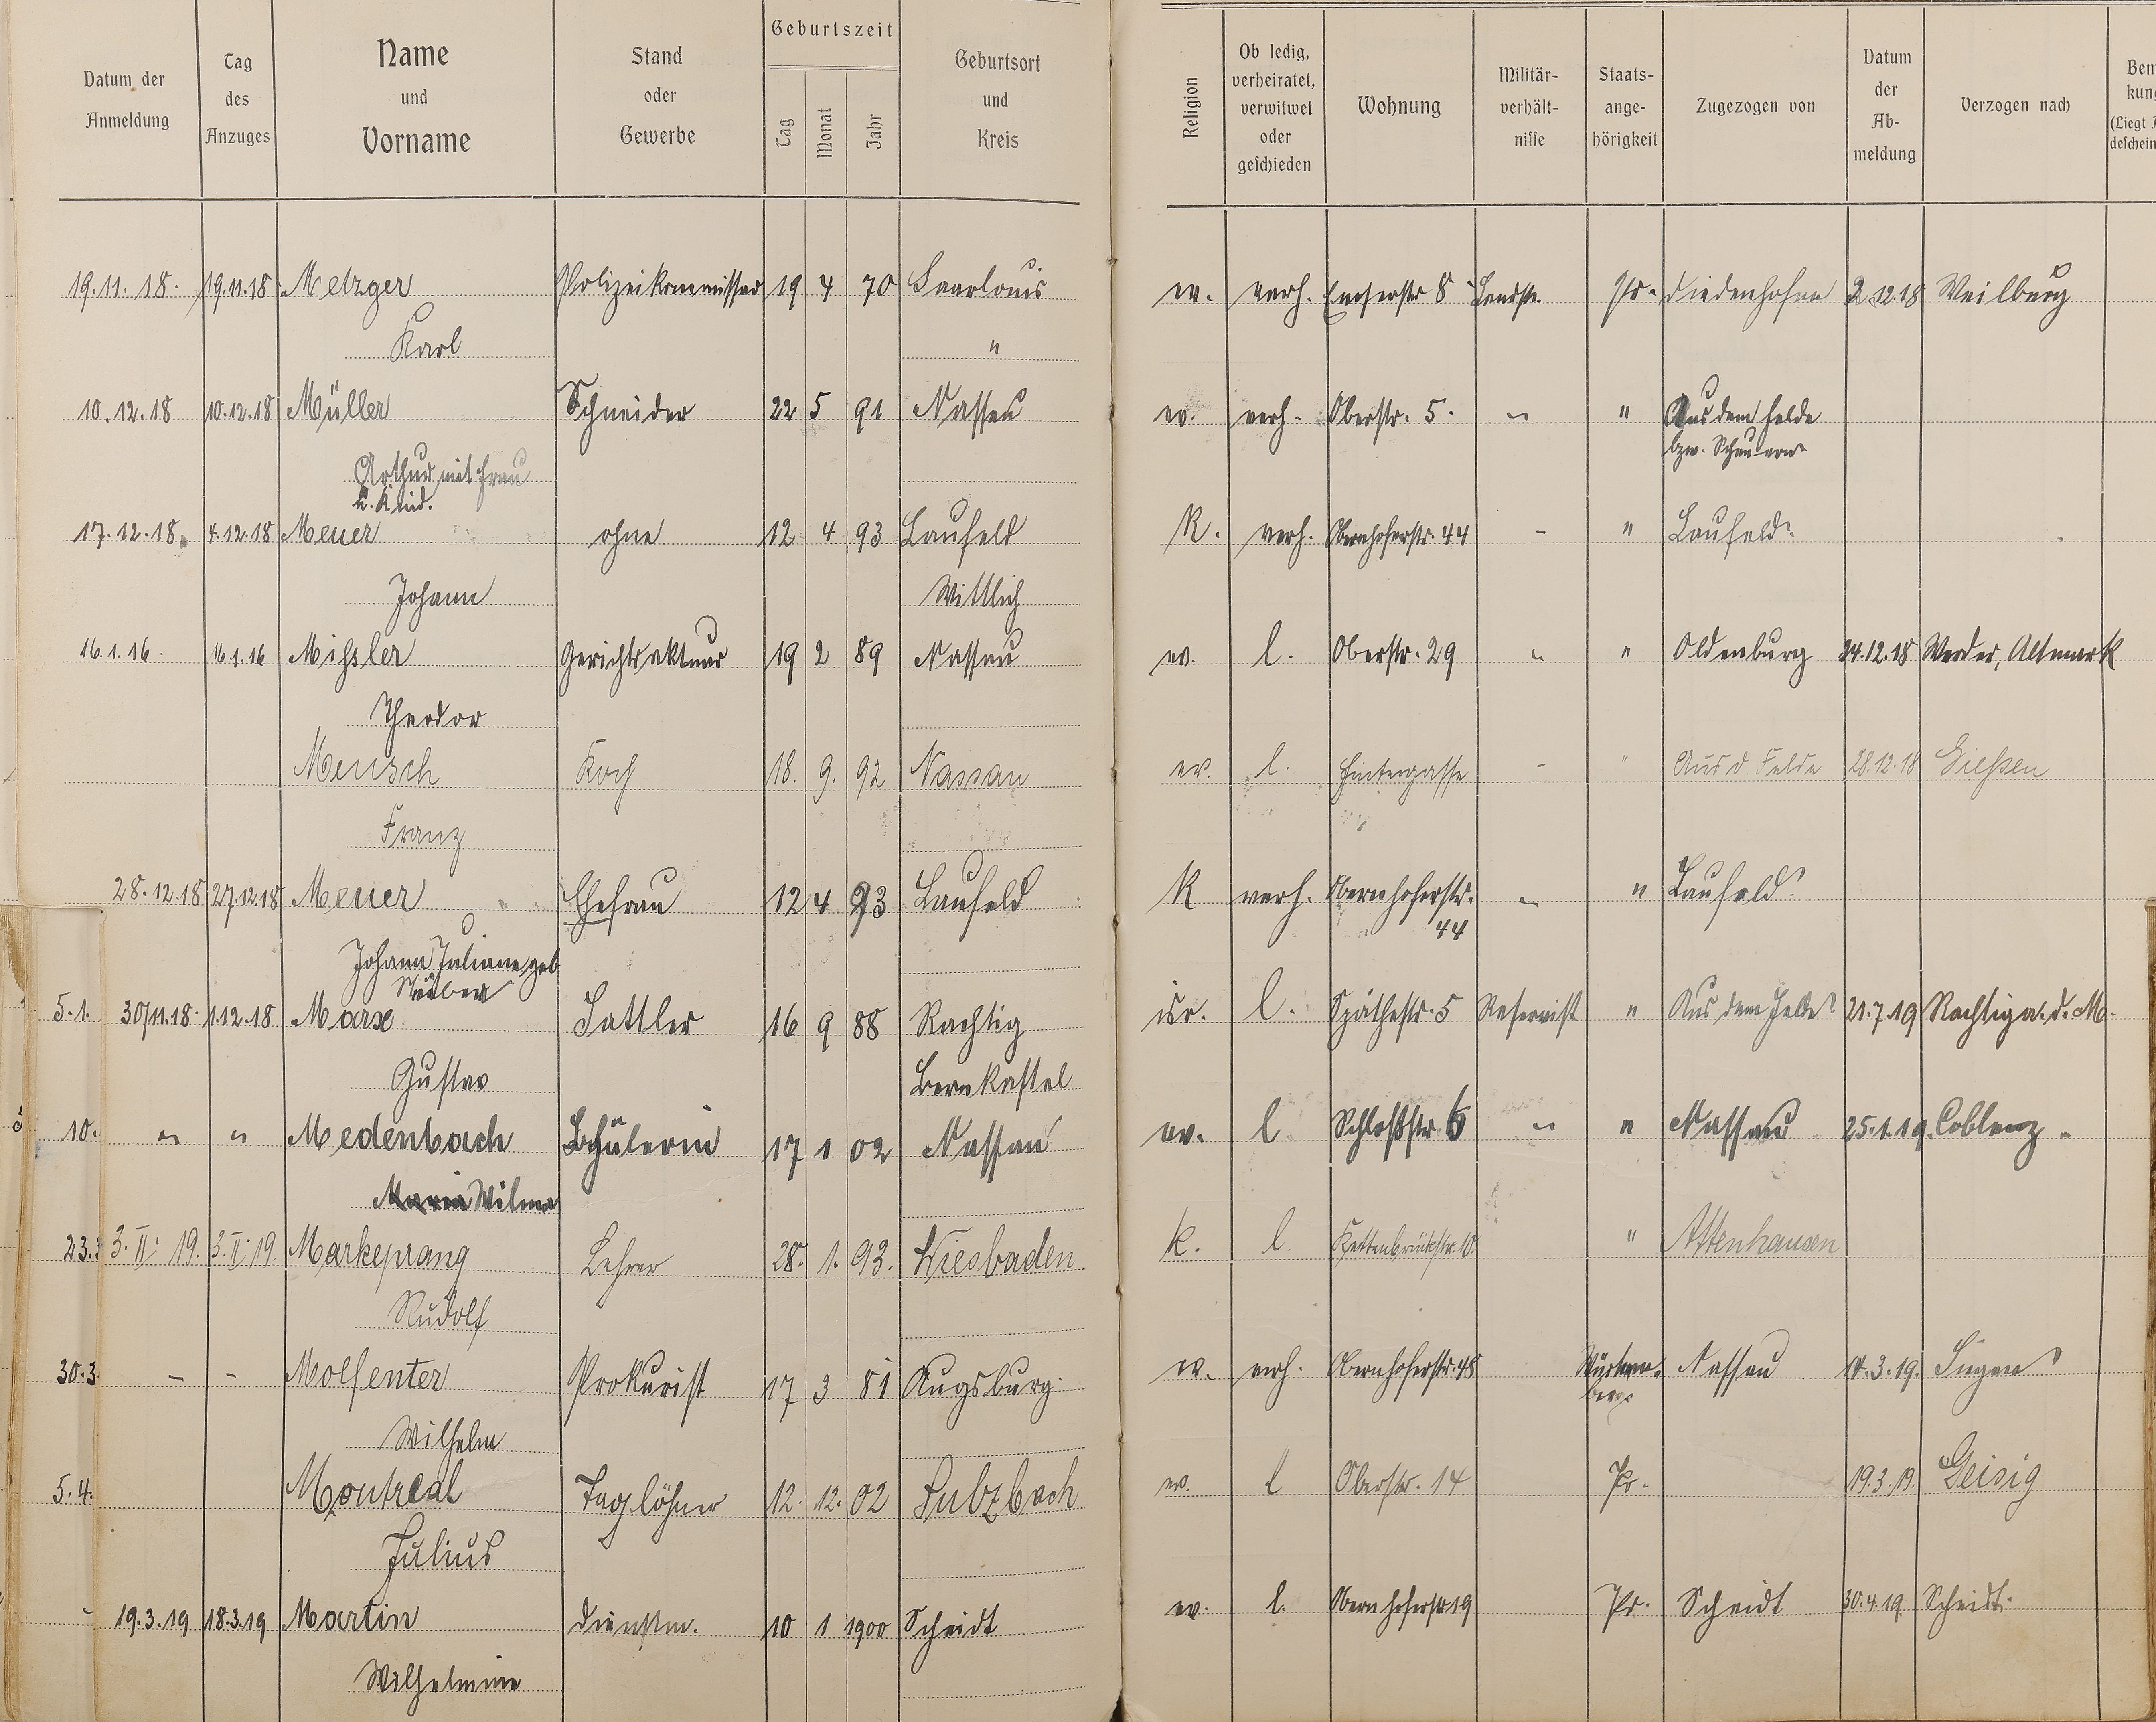 Datum der Anmeldung | Tag des Anzuges | Name und Vorname | Stand oder Gewerbe | Geburtszeit Tag Monat Jahr | Geburtsort und Kreis | Religion | Ob ledig, verheiratet, verwitwet oder geschieden | Wohnung | Militär-verhält-nisse | Staats-ange-hörigkeit | Zugezogen von | Datum der Ab-meldung | Verzogen nach
19.11.18. 19.11.18 Metzger Polizeikommissar 19 4 70 Saarlouis ev. verh. Emserstr 8 Landst. Pr. Diedenhofen 2.12.18 Weilburg
Karl "
10.12.18 10.12.18 Müller Schneider 22 5 91 Nassau ev. verh. Oberstr. 5. " " Aus dem Felde
bzw.
Arthur mit Frau
u. Kind.
17.12.18. 4.12.18 Meuer ohne 12 4 93 Laufeld K. verh. Obernhoferstr. 44 - " Laufeld.
Johann Wittlich
16.1.16. 16.1.16 Missler Gerichtsaktuar 19 2 89 Nassau ev. l. Oberstr. 29 " " Oldenburg 24.12.18 Werder, Altmark
Theodor
Mensch Koch 18. 9. 92 Nassau ev. l. Hintergasse - " Aus d. Felde 28.12.18 Giessen
Franz
28.12.18 27.12.18 Meuer Ehefrau 12 4 93 Laufeld K verh. Obernhoferstr. 44 " " Laufeld.
Johann Juliane geb
5.1. 30/11.18. 1.12.18 Marx Sattler 16 9 88 Rachtig isr. l. Späthestr. 5 Reservist " Aus dem Felde 21.7.19 Rachtig a. d. M.
Gustav Bernkastel
10. " " Medenbach Schülerin 17 1 02 Nassau ev. l Schloßstr 6 " " Nassau 25.1.19. Coblenz
Maria Wilma
23. 3. II. 19. 3. II. 19. Markeprang Lehrer 28. 1. 93. Wiesbaden k. l. Kettenbrückstr. 10. " Attenhausen
Rudolf
30.3 - - Molfenter Prokurist 17 3 81 Augsburg. ev. verh. Obernhoferstr. 48 Würtem-berg. Nassau 11.3.19. Singen
Wilhelm
5.4. Montreal Taglöhner 12. 12. 02 Sulzbach ev. l Oberstr. 14 Pr. 19.3.19. Geisig
Julius
19.3.19 18.3.19 Martin Dienstm. 10 1 1900 Scheidt ev. l. Obernhoferstr 19 Pr. Scheidt 30.4.19. Scheidt.
Wilhelmine